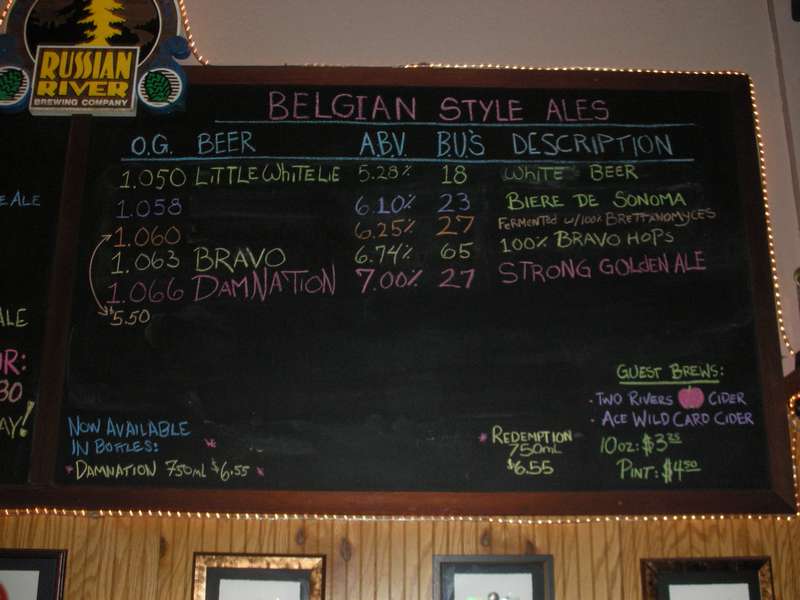 RUSSIAN
RIVER
BREWING COMPANY
BELGIAN STYLE ALES
O.G. BEER A.B.V. B.U.'S DESCRIPTION
1.050 LITTLE WHITE LIE 5.28% 18 WHITE BEER
1.058 6.10% 23 BIERE DE SONOMA
1.060 6.25% 27 FERMENTED W/100% BRETTANOMYCES
1.063 BRAVO 6.74% 65 100% BRAVO HOPS
1.066 DAMNATION 7.00% 27 STRONG GOLDEN ALE
$5.50
E ALE
ALE
UR:
30
AY!
NOW AVAILABLE
IN BOTTLES:
* DAMNATION 750ML $6.55 *
* REDEMPTION
750ML
$6.55
GUEST BREWS:
• TWO RIVERS CIDER
• ACE WILD CARD CIDER
10oz: $3.25
PINT: $4.50